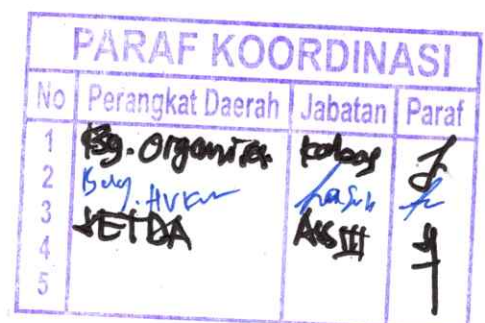 PARAF KOORDINASI
No Perangkat Daerah Jabatan Paraf
1 Bg. Organisa. Kabag
2 Bag. Hukum
3 SETDA ASS III
4
5